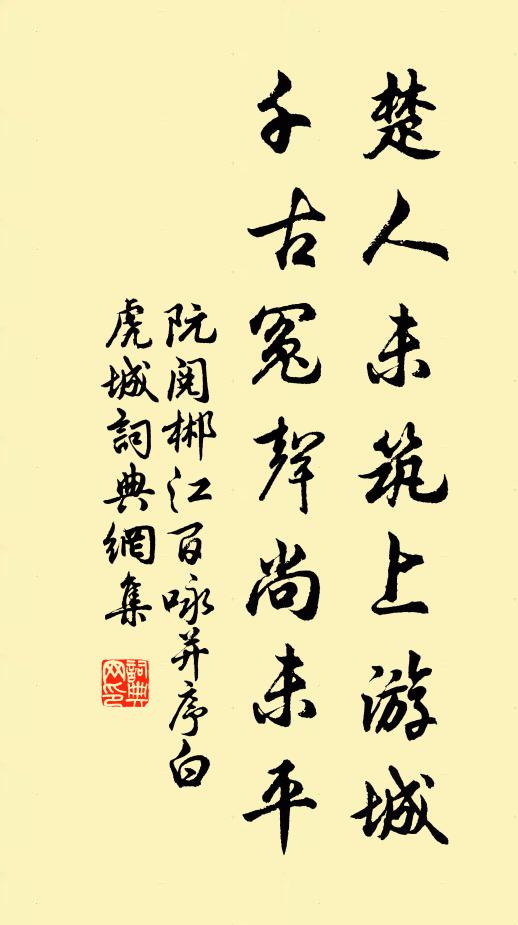 楚人未筑上游城
千古冤聲尚未平
阮閱郴江百咏并序白
虎城詞典網集
詞典网印